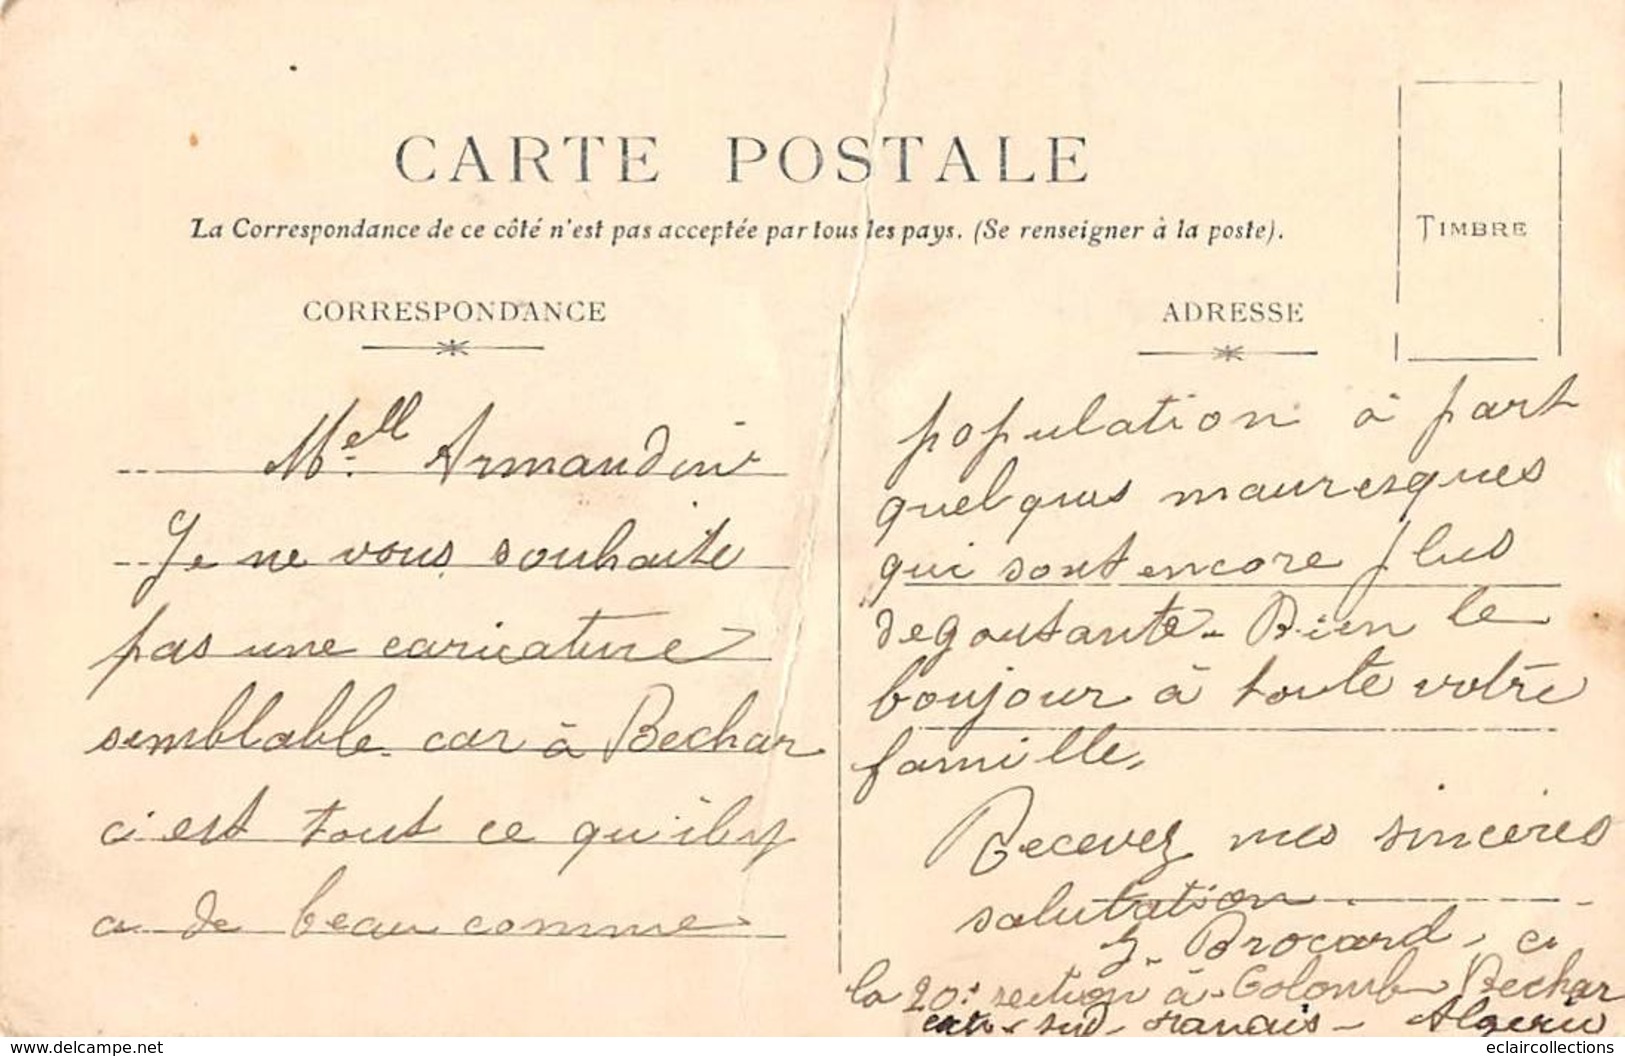 CARTE POSTALE
La Correspondance de ce côté n'est pas acceptée par tous les pays. (Se renseigner à la poste).
TIMBRE
CORRESPONDANCE
Mell. Armandine
Je ne vous souhaite
pas une caricature
semblable car à Bechar
c'est tout ce qu'il y
a de beau comme
ADRESSE
population à part
quelques mauresques
qui sont encore plus
degoutante. Bien le
bonjour à toute votre
famille,
Recevez mes sincères
salutation
G. Brocard, a
la 20e section à Colomb Bechar
sud oranais - Algerie
delcampe.net
eclaircollections